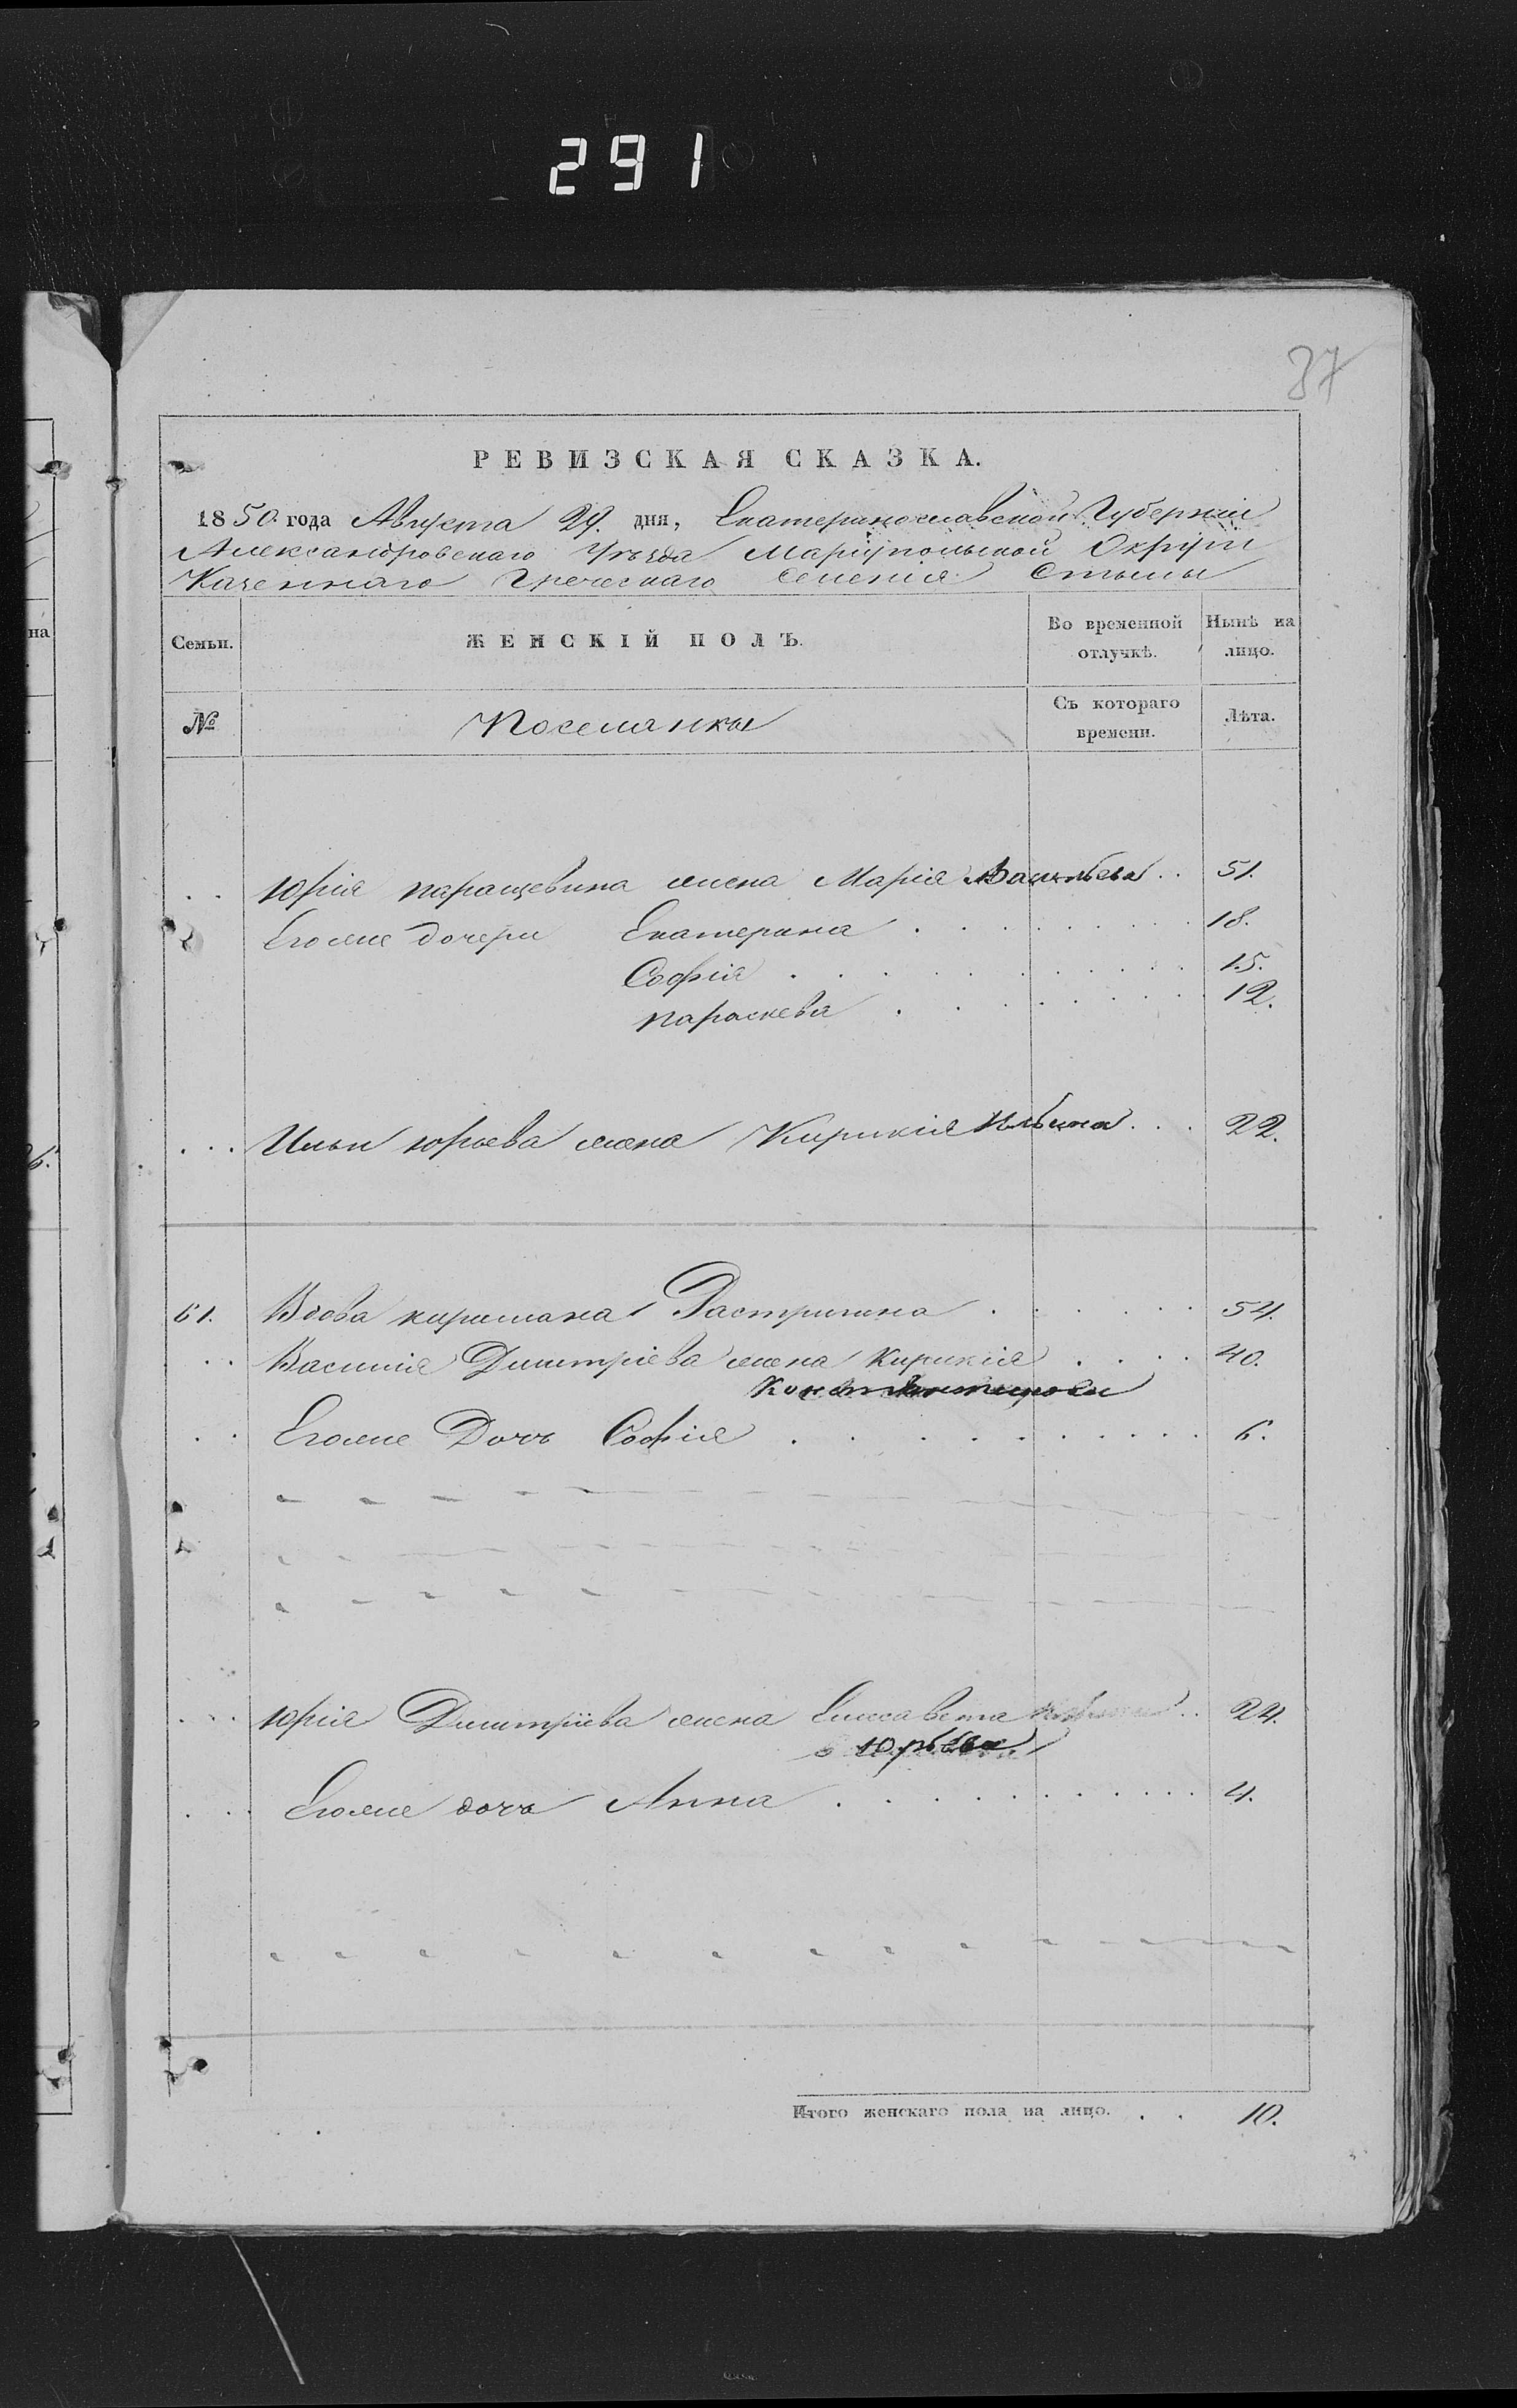 291
37
РЕВИЗСКАЯ СКАЗКА.
1850 года Августа 29. дня, Екатеринославской Губерніи
Александровскаго Уѣзда Маріупольской Округи
Казеннаго Греческаго Селенія Стылы
Семьи. ЖЕНСКІЙ ПОЛЪ. Во временной отлучкѣ. Нынѣ на лицо.
№ Поселянки Съ котораго времени. Лѣта.
. . Юрія паращевина жена Марія Васильева . . 51.
Егоже дочери Екатерина . . . . . . . . 18.
Софія . . . . . . . . . . 15.
параскева . . . . . . . . 12.
. . . Ильи юрьева жена Кирикія Ильина . . . 22.
61. Вдова Растригина . . . . . . 54.
. . Василія Дмитріева жена Кирикія . . . . 40.
Константинова
. . Егоже Дочь Софія . . . . . . . . . . . 6.
. . . Юрія Дмитріева жена Елисавета . . 24.
Юрьева
. . . Егоже дочь Анна . . . . . . . . . . . 4.
Итого женскаго пола на лицо. . . 10.
на
6.